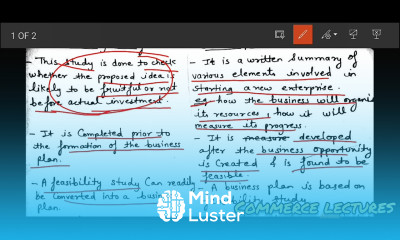 1 OF 2
- This study is done to check
whether the proposed idea is
likely to be fruitful or not
before actual investment.
- It is Completed prior to
the formation of the business
plan.
- A feasibility study Can readily
be Converted into a business
plan.
- It is a written Summary of
various elements involved in
starting a new enterprise.
eg how the business will organize
its resources, how it will
measure its progress.
- It is measure developed
after the business opportunity
is Created & is found to be
feasible.
- A business plan is based on
feasibility study.
Mind
Luster
COMMERCE LECTURES